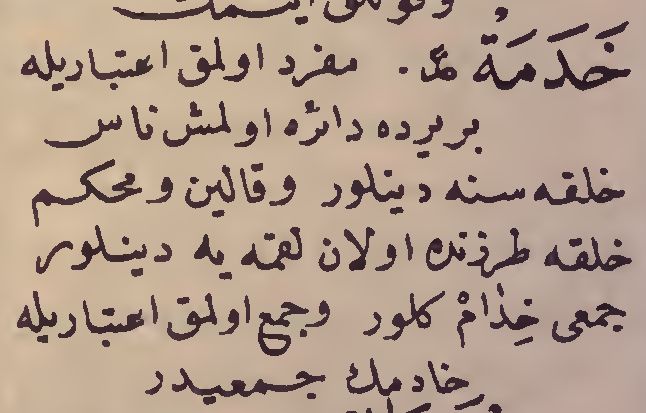 خَدَمَةٌ عر. مفرد اولمق اعتباریله
بر یرده دائره اولمش ناس
خلقه سنه دینلور وقالین ومحکم
خلقه طرزنده اولان لقمه یه دینلور
جمعی خِدَامْ کلور وجمع اولمق اعتباریله
خادمك جمعیدر